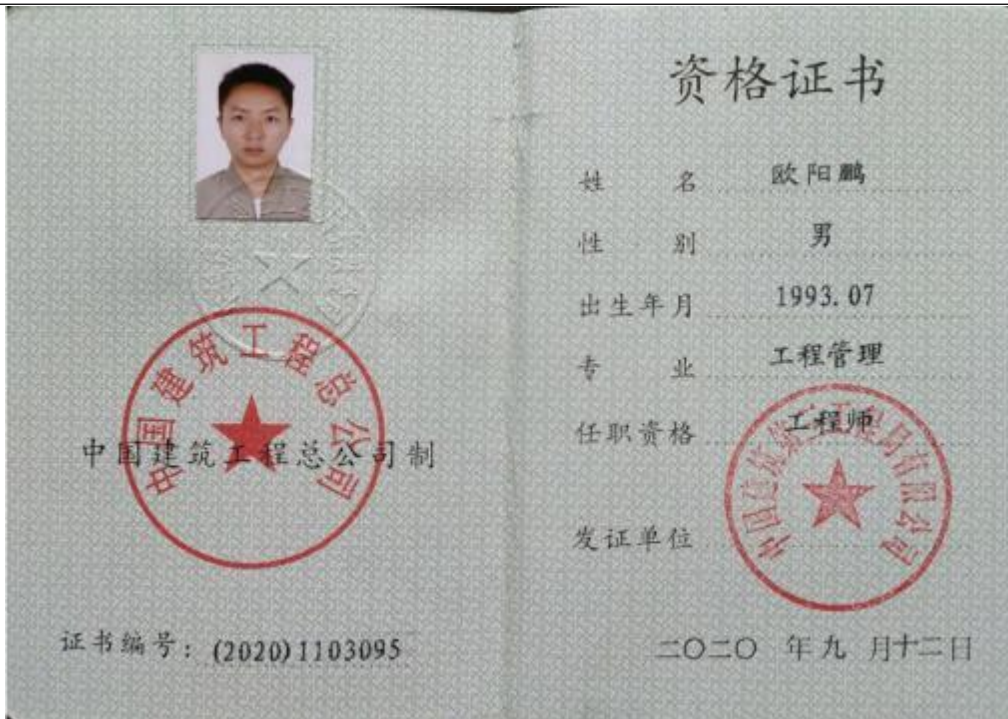 中国建筑工程总公司
中国建筑工程总公司制
证书编号：(2020)1103095
资格证书
姓 名 欧阳鹏
性 别 男
出生年月 1993.07
专 业 工程管理
任职资格 工程师
发证单位
中国建筑第二工程局有限公司
二〇二〇 年 九 月 十二 日